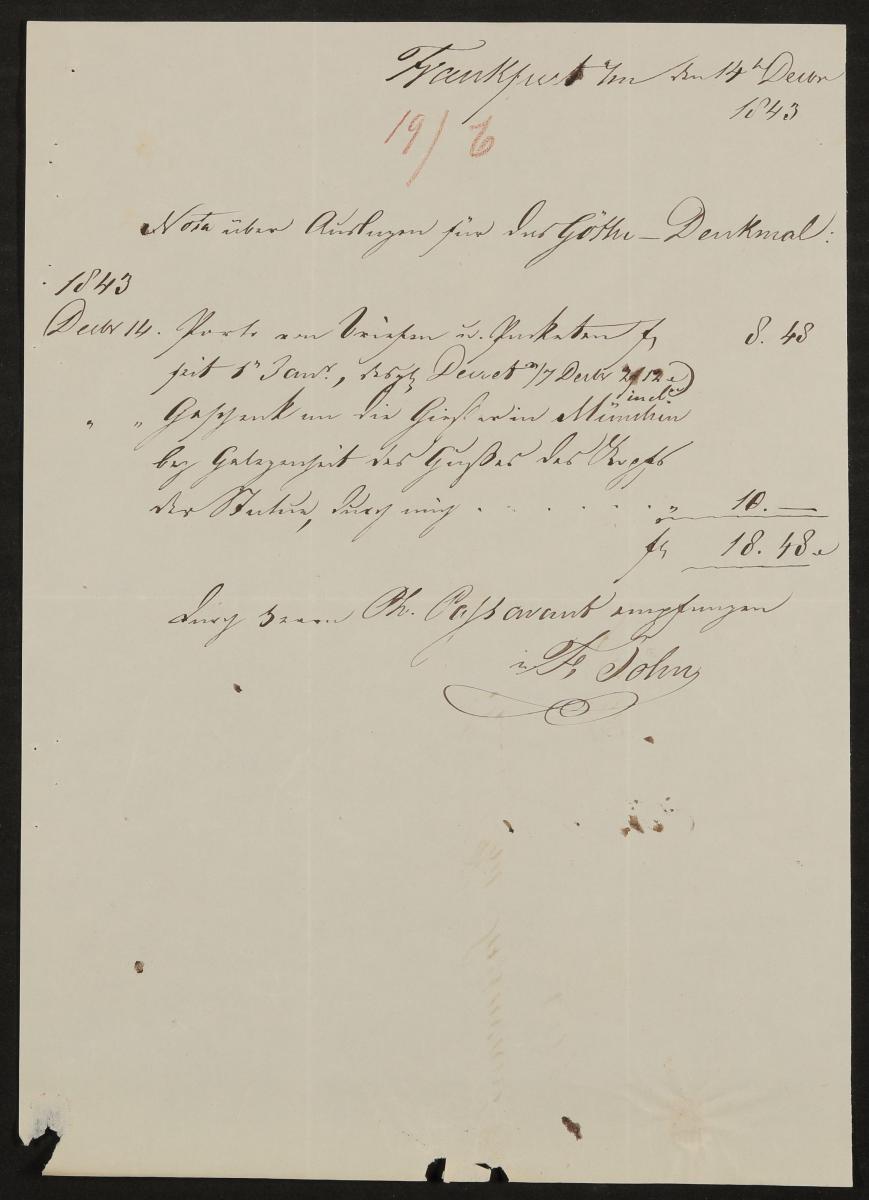 Frankfurt a/m den 14ⁿ Decbr
1843
19/6
Nota über Auslagen für das Göthe-Denkmal:
1843
Decbr 14. Porto von Briefen u. Paketen f 8. 48
seit 1ⁿ Janr., Decret Decbr 12
incl.
" " Geschenk an die Gießer in München
bey Gelegenheit des Gußes des Kopfs
der Statue, durch mich . . . . . . " 10. —
f 18. 48
durch Herrn Ph. Passavant empfangen
John